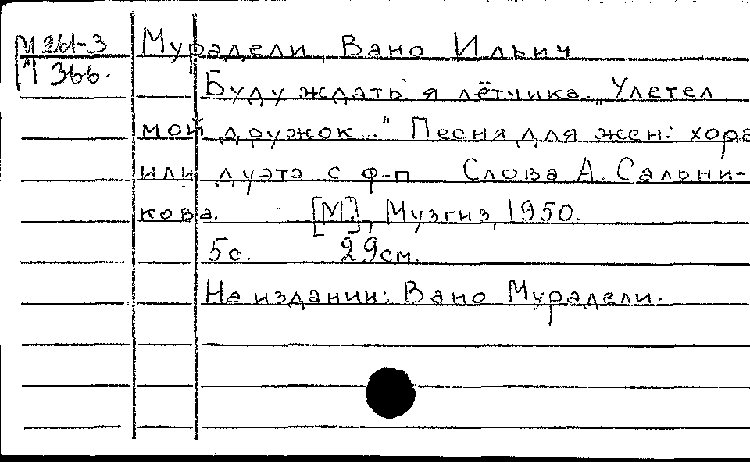 М 261-3 Мурадели Вано Ильич
М 366.
Буду ждать я лётчика. „Улетел
мой дружок..." Песня для жен. хора
или дуэта с ф-п Слова А. Сальни-
кова. [М.], Музгиз, 1950.
5с. 29см.
На издании: Вано Мурадели.